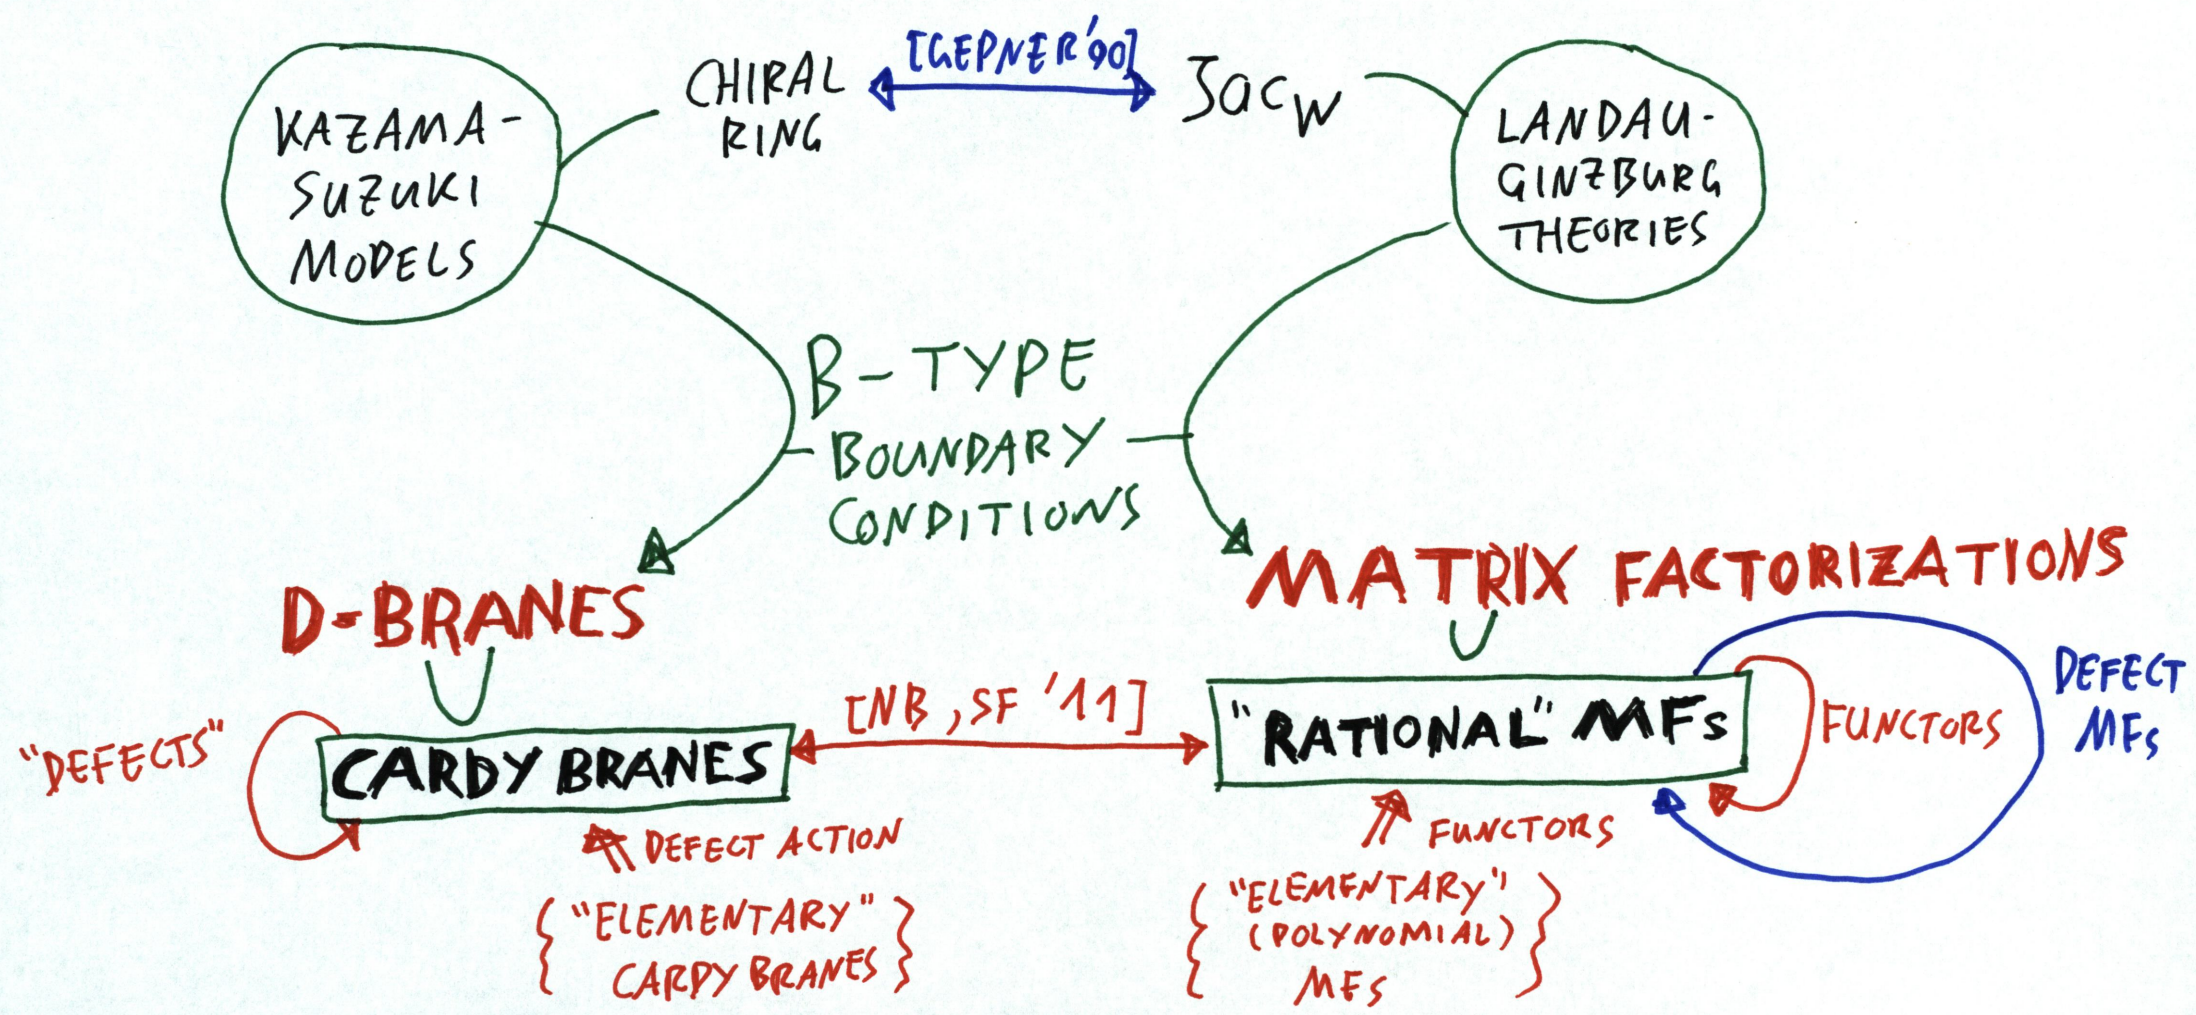 KAZAMA-
SUZUKI
MODELS
CHIRAL
RING
[GEPNER'90]
Jac_W
LANDAU-
GINZBURG
THEORIES
B-TYPE
BOUNDARY
CONDITIONS
D-BRANES
MATRIX FACTORIZATIONS
"DEFECTS"
CARDY BRANES
[NB, SF '11]
"RATIONAL" MFs
FUNCTORS
DEFECT
MFs
DEFECT ACTION
FUNCTORS
{ "ELEMENTARY" }
CARDY BRANES
{ "ELEMENTARY" }
(POLYNOMIAL)
MFs